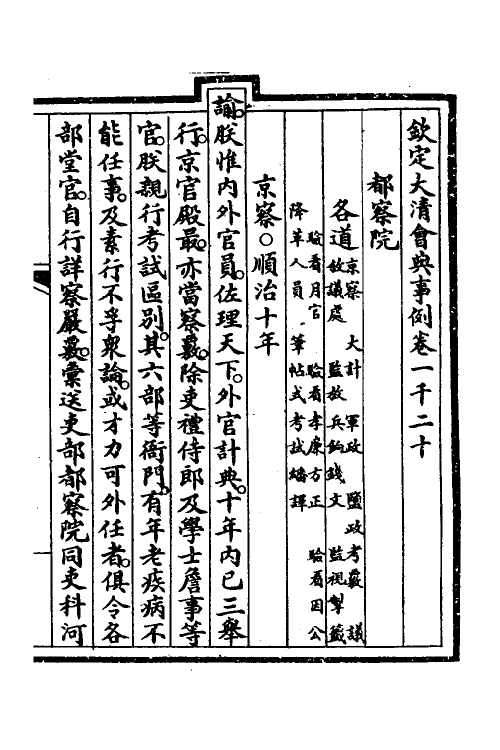 欽定大清會典事例卷一千二十
都察院
各道京察 大計 軍政 鹽政考覈 議
敘議處 監放兵餉錢文 監視掣籤
驗看月官 驗看孝廉方正 驗看因公
降革人員 筆帖式考試繙譯
京察○順治十年
諭。朕惟內外官員。佐理天下。外官計典。十年內已三舉
行。京官殿最。亦當察覈。除吏禮侍郎及學士詹事等
官。朕親行考試區別。其六部等衙門。有年老疾病不
能任事。及素行不孚衆論。或才力可外任者。俱令各
部堂官。自行詳察嚴覈。彙送吏部都察院同吏科河